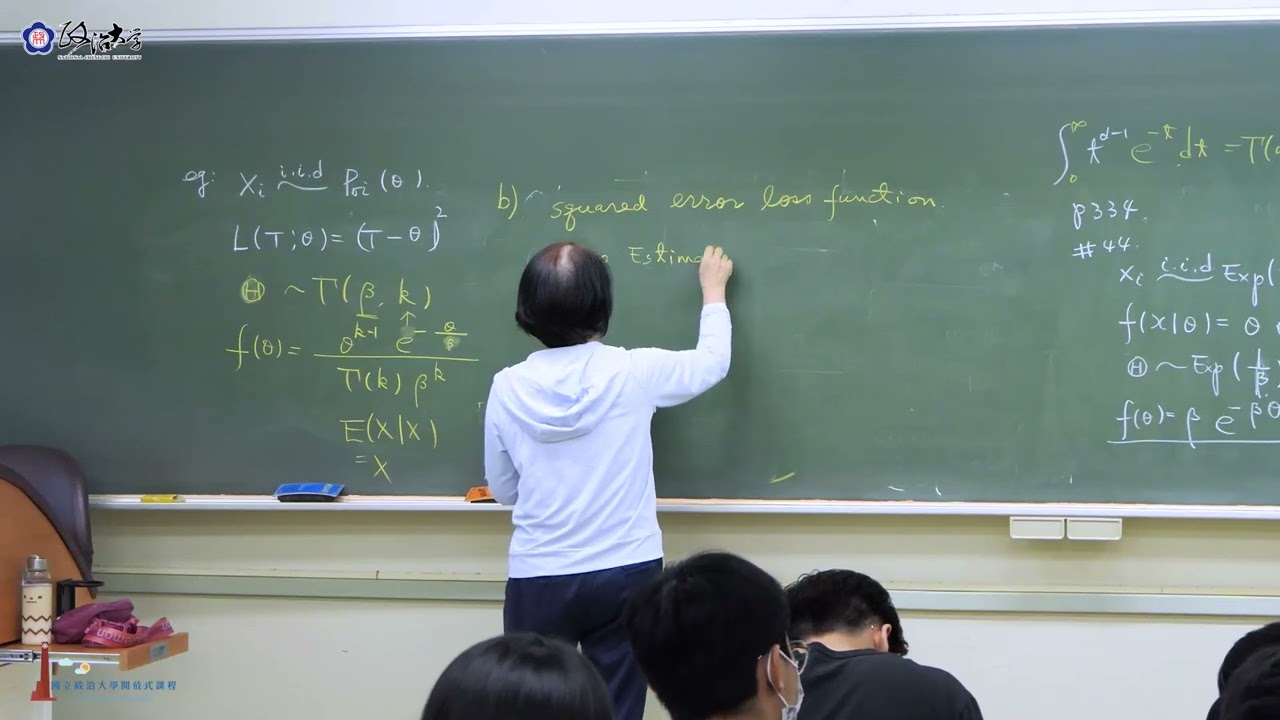 政治大學
NATIONAL CHENGCHI UNIVERSITY
eg: Xi i.i.d ~ Poi (θ).
L(T;θ)= (T-θ)²
Ⓗ ~ Γ(β, k)
f(θ)= θ^{k-1} e^{-θ/β} / Γ(k) β^k
E(X|X)
=X
b) squared error loss function.
Estima
∫₀^∞ t^{α-1} e^{-t} dt = Γ(α
p334.
#44.
Xi i.i.d ~ Exp(
f(x|θ)= θ
Ⓗ ~ Exp(1/β
f(θ)= β e^{-βθ
國立政治大學開放式課程